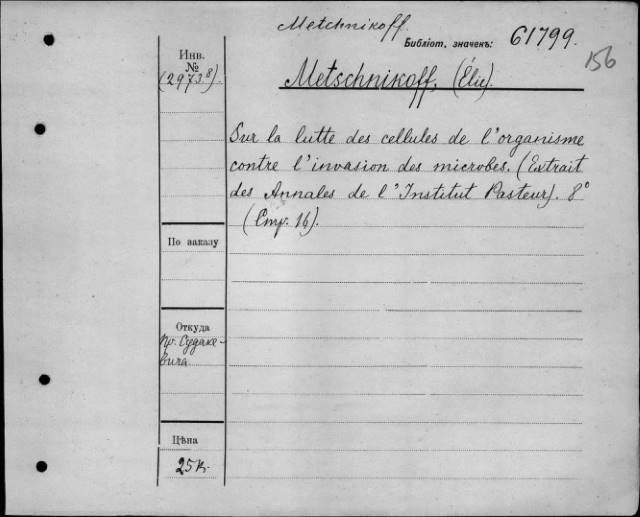 Metchnikoff.
Библіот. значекъ: 61799.
156
Инв.
№
(29738).
Metschnikoff, (Élie).
Sur la lutte des cellules de l'organisme
contre l'invasion des microbes. (Extrait
des Annales de l'Institut Pasteur). 8°
(Стр. 16).
По заказу
Откуда
Пр. Судаке-
вича
Цѣна
25к.